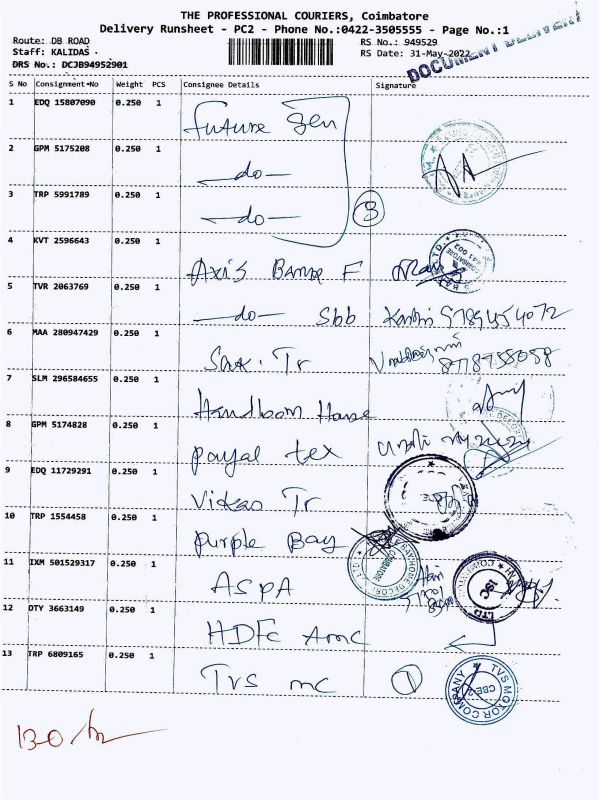 THE PROFESSIONAL COURIERS, Coimbatore
Delivery Runsheet - PC2 - Phone No.:0422-3505555 - Page No.:1
Route: DB ROAD RS No.: 949529
Staff: KALIDAS RS Date: 31-May-2022
DRS No.: DCJB94952901
DOCUMENT DELIVERY
S No Consignment No Weight PCS Consignee Details Signature
1 EDQ 15807090 0.250 1 Future Gen
2 GPM 5175208 0.250 1 —do—
3 TRP 5991789 0.250 1 —do— 3
4 KVT 2596643 0.250 1 Axis Bank F
5 TVR 2063769 0.250 1 —do— Sbb
6 MAA 280947429 0.250 1 Tr
7 SLM 296584655 0.250 1 Handloom House
8 GPM 5174828 0.250 1 Payal tex
9 EDQ 11729291 0.250 1 Vikas Tr
10 TRP 1554458 0.250 1 Purple Bay
11 IXM 501529317 0.250 1 ASPA
12 OTY 3663149 0.250 1 HDFC Amc
13 TRP 6809165 0.250 1 TVS mc 1
TVS MOTOR COMPANY
CBE-2